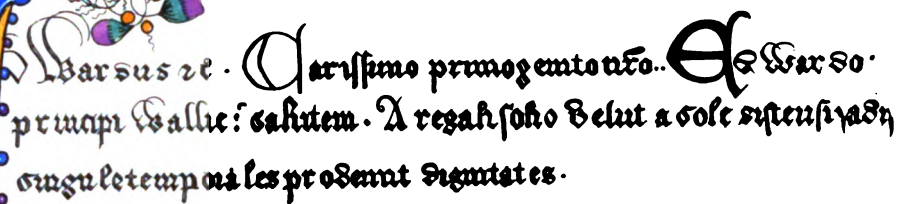 dwardus ⁊c · Clarissimo primogenito nr̃o.. Edwardo·
principi Wallie: salutem. A regali solio velut a sole
singule temporales prodeunt dignitates.